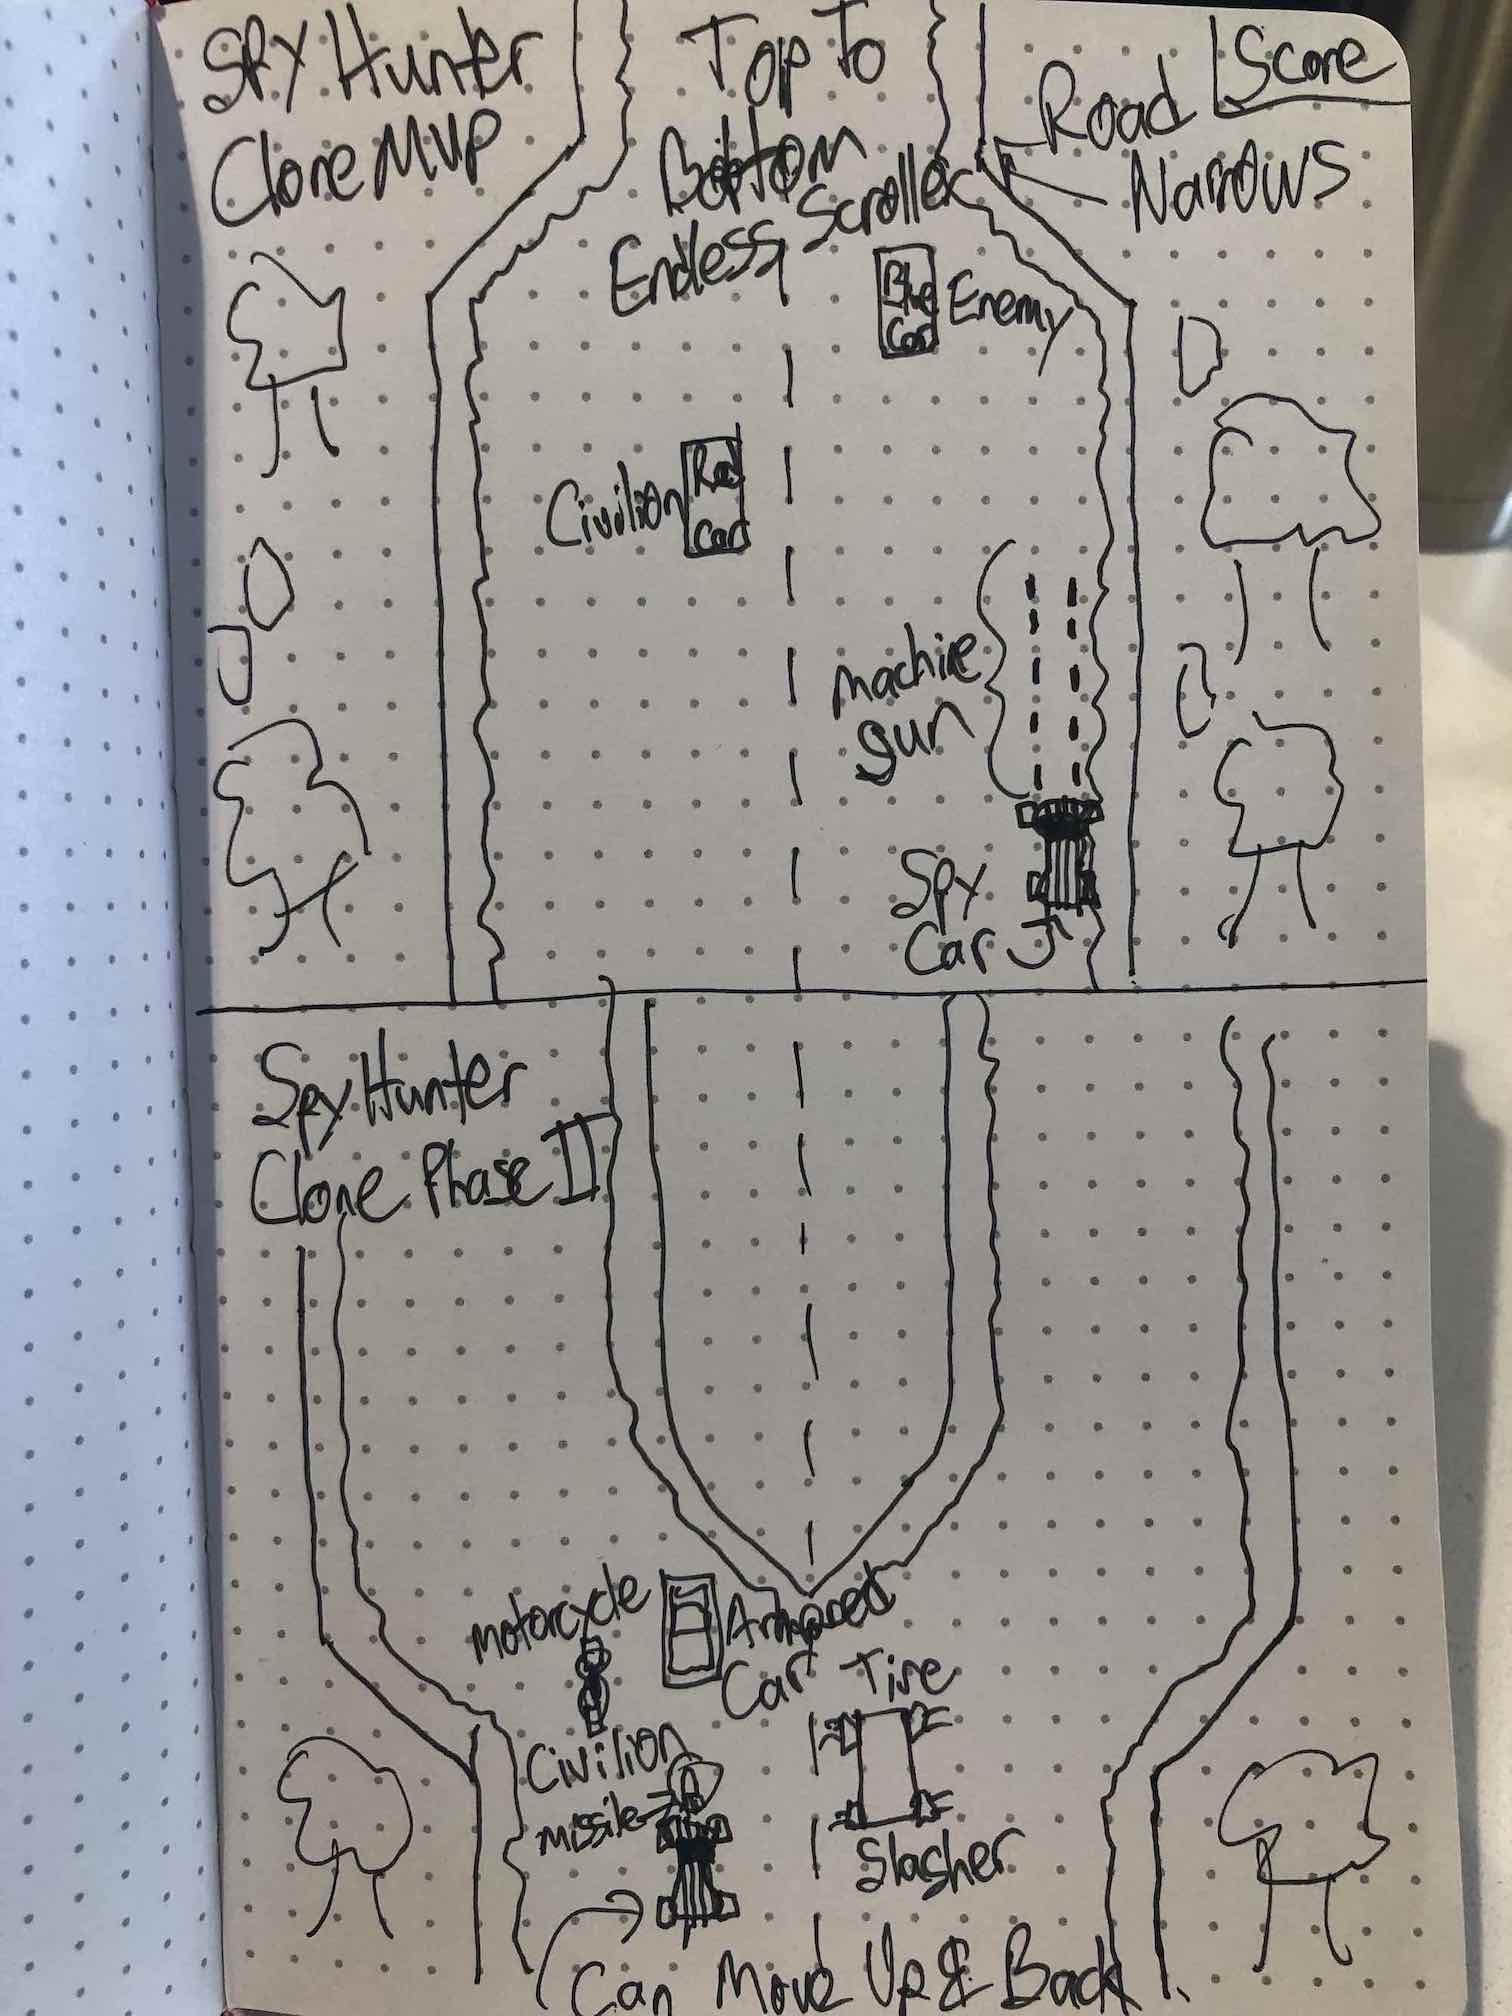 Spy Hunter
Clone MVP
Top To
Bottom
Endless Scroller
Score
Road
Narrows
Blue
Car
Enemy
Civilion
Red
Car
machine
gun
Spy
Car
Spy Hunter
Clone Phase II
motorcycle
Civilion
Armored
Car
Tire
Slasher
missile
Can Move Up & Back